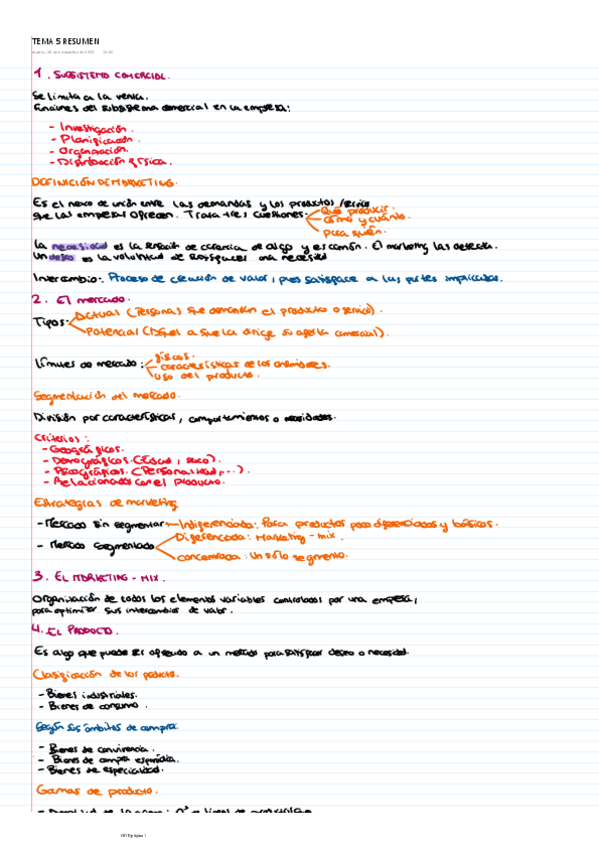 TEMA 5 RESUMEN
1. SUBSISTEMA COMERCIAL.
Se limita a la venta.
Funciones del subsistema comercial en la empresa:
- Investigación.
- Planificación.
- Organización.
- Distribución física.
DEFINICIÓN DE MARKETING.
Es el nexo de unión entre las demandas y los productos/servicios
que las empresas ofrecen. Trata tres cuestiones:
Qué producir.
Cómo y cuánto.
Para quién.
La necesidad es la sensación de carencia de algo y es común. El marketing las detecta.
Un deseo es la voluntad de satisfacer una necesidad
Intercambio: Proceso de creación de valor, pues satisface a las partes implicadas.
2. El mercado.
Tipos:
Actual (Personas que demandan el producto o servicio).
Potencial ( a que la dirige su oferta comercial).
Límites de mercado:
Físicos.
Características de los
Uso del producto.
Segmentación del mercado.
División por características, comportamientos o necesidades.
Criterios:
- Geográficos.
- Demográficos. (Edad, sexo).
- Psicográficos. (Personalidad, ...).
- Relacionados con el producto.
Estrategias de marketing
- Mercado sin segmentar Indiferenciada: Para productos poco diferenciados y básicos.
- Mercado segmentado
Diferenciada: Marketing - mix.
Concentrada: Un sólo segmento.
3. EL MARKETING - MIX.
Organización de todos los elementos variables controlados por una empresa,
para optimizar sus intercambios de valor.
4. EL PRODUCTO.
Es algo que puede ser ofrecido a un mercado para satisfacer deseo o necesidad.
Clasificación de los producto.
- Bienes industriales.
- Bienes de consumo.
Según sus ámbitos de compra
- Bienes de conveniencia.
- Bienes de compra esporádica.
- Bienes de especialidad.
Gamas de producto.